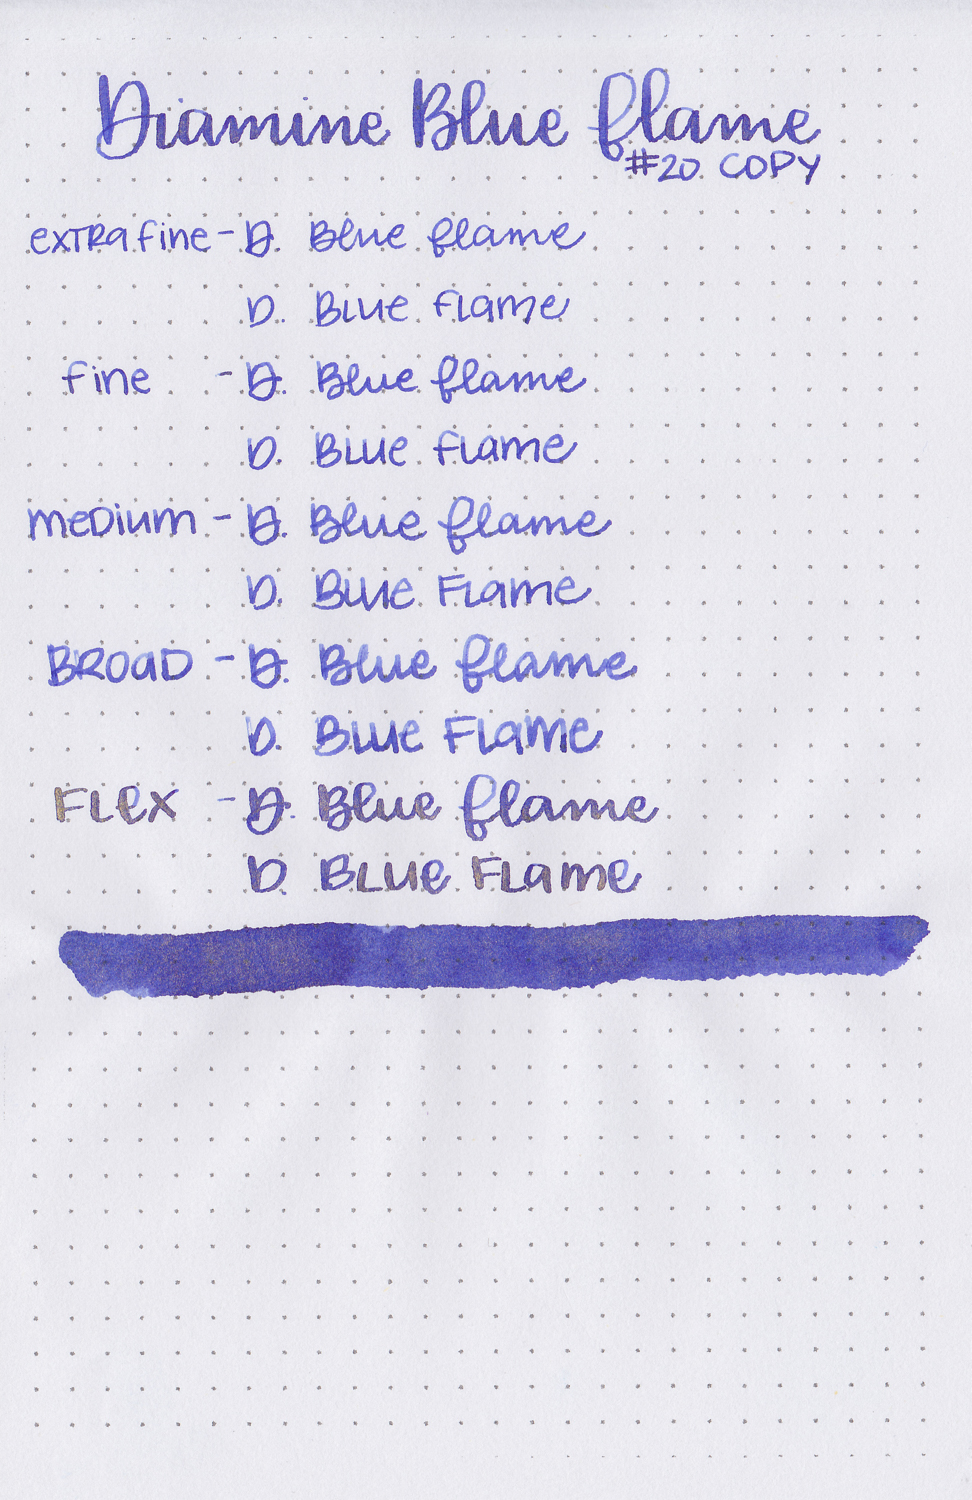 Diamine Blue flame
#20 COPY
extra fine - D. Blue flame
D. Blue flame
fine - D. Blue flame
D. Blue flame
medium - D. Blue flame
D. Blue Flame
BROAD - D. Blue flame
D. Blue Flame
FLEX - D. Blue flame
D. BLUE FLame